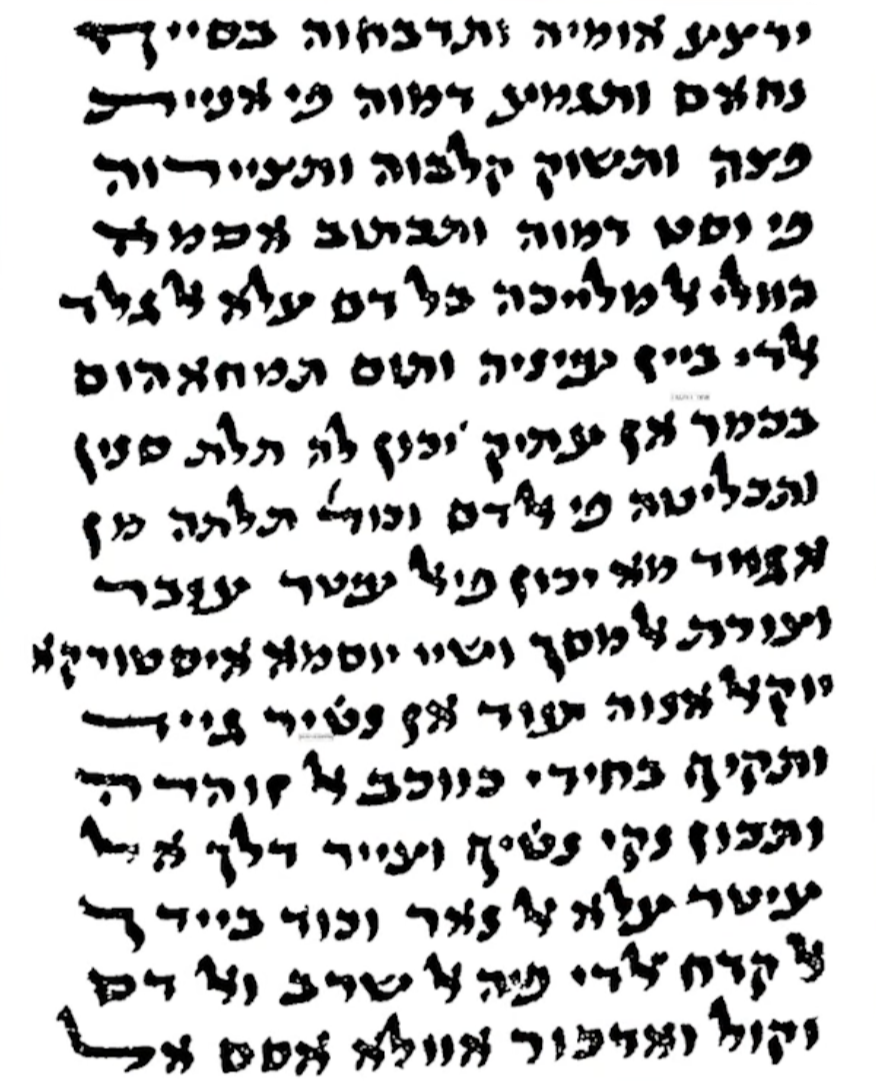 ירציע אומיה ותדבחוה בסייך
נחאס ותגמיע דמוה פי
פצה ותשוק קלבוה ותציירוה
פי וסט דמוה ותכתוב
כוולי אל מלייכה בל דם עלא אל גלד
אלדי בייץ ותום תמחאהום
בכמר אן עתיק יכון לה תלת סנין
ותכליטה פי אל דם וכוד תלתה מן
מא יכון פי אל עטר ענבר
אל מסך ושיי יוסמא איסטורקא
יוקאל עוד אן גייד
ותקיף בחידי כווכב אל זוהרה
ותכון נקי נטיף דלך אל
עיטר עלא אל נאר וכוד ביידך
אל קדח אלדי פיה אל שרב ואל דם
וקול ואדכור אוולא אסם אל